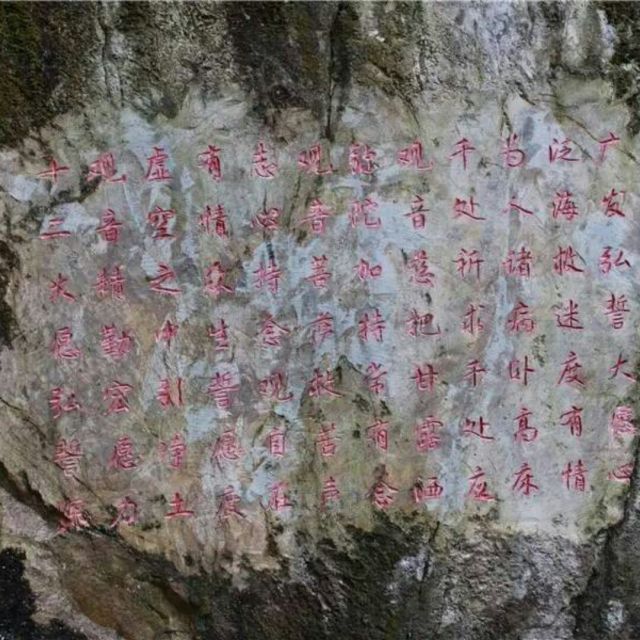 广发弘誓大愿心
泛海救迷度有情
与人诸病卧高床
千处祈求千处应
观音慈把甘露洒
弥陀加持常有
观音菩萨救苦声
志心持念观自在
有情众生誓愿度
虚空之中引土
观音精勤宏愿力
十三大愿弘誓深